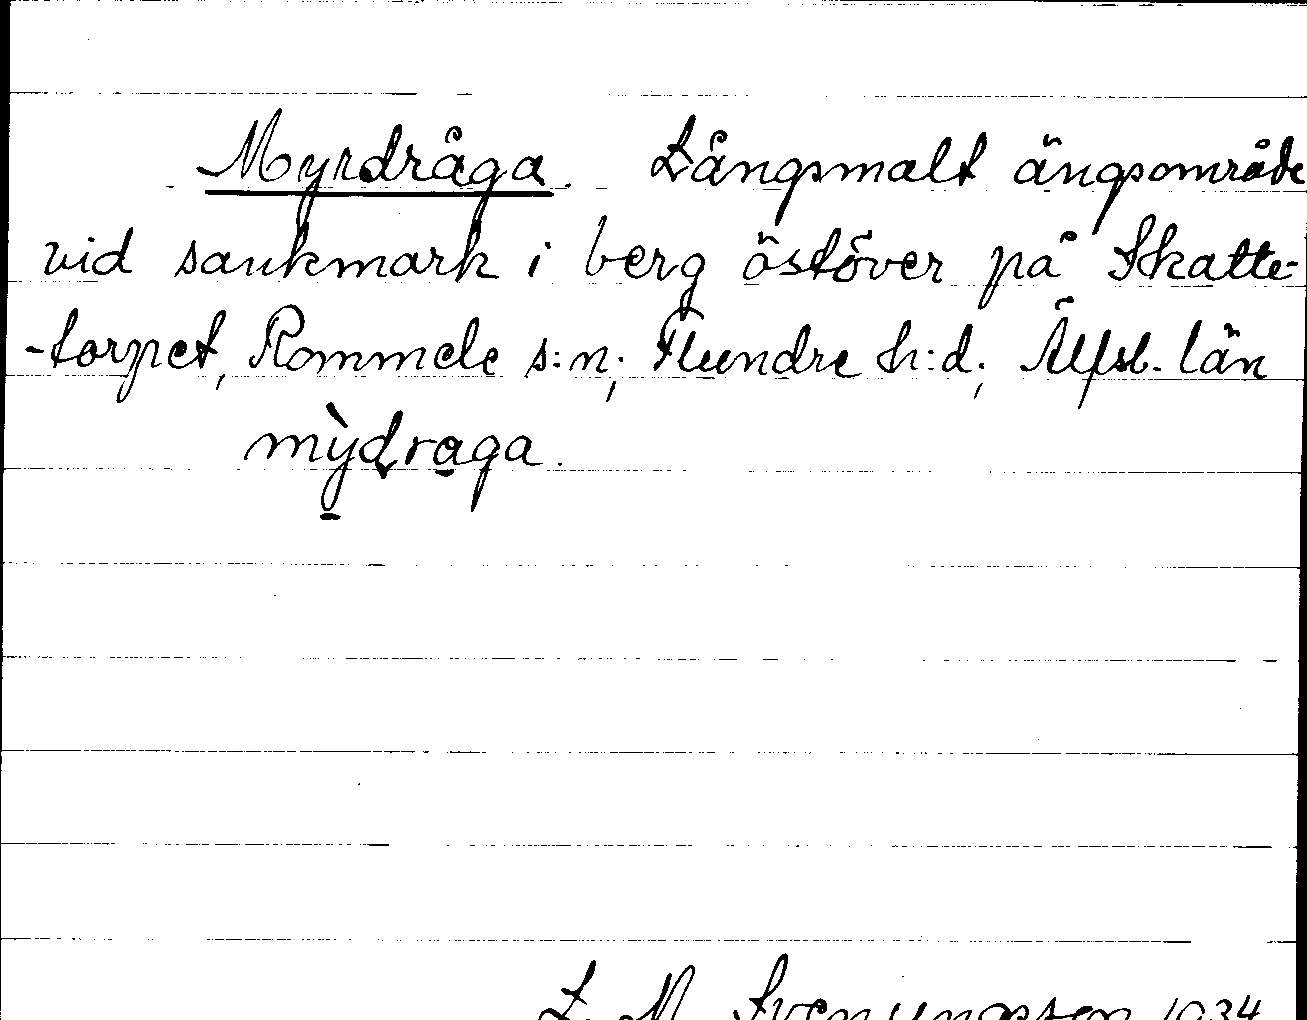 Myrdråga. Långsmalt ängsområde
vid sankmark i berg östöver på Skatte-
-torpet, Rommele s:n; Flundre h:d; Älfsb. län
mỳdraga.
L. M. Svenungsson 1934